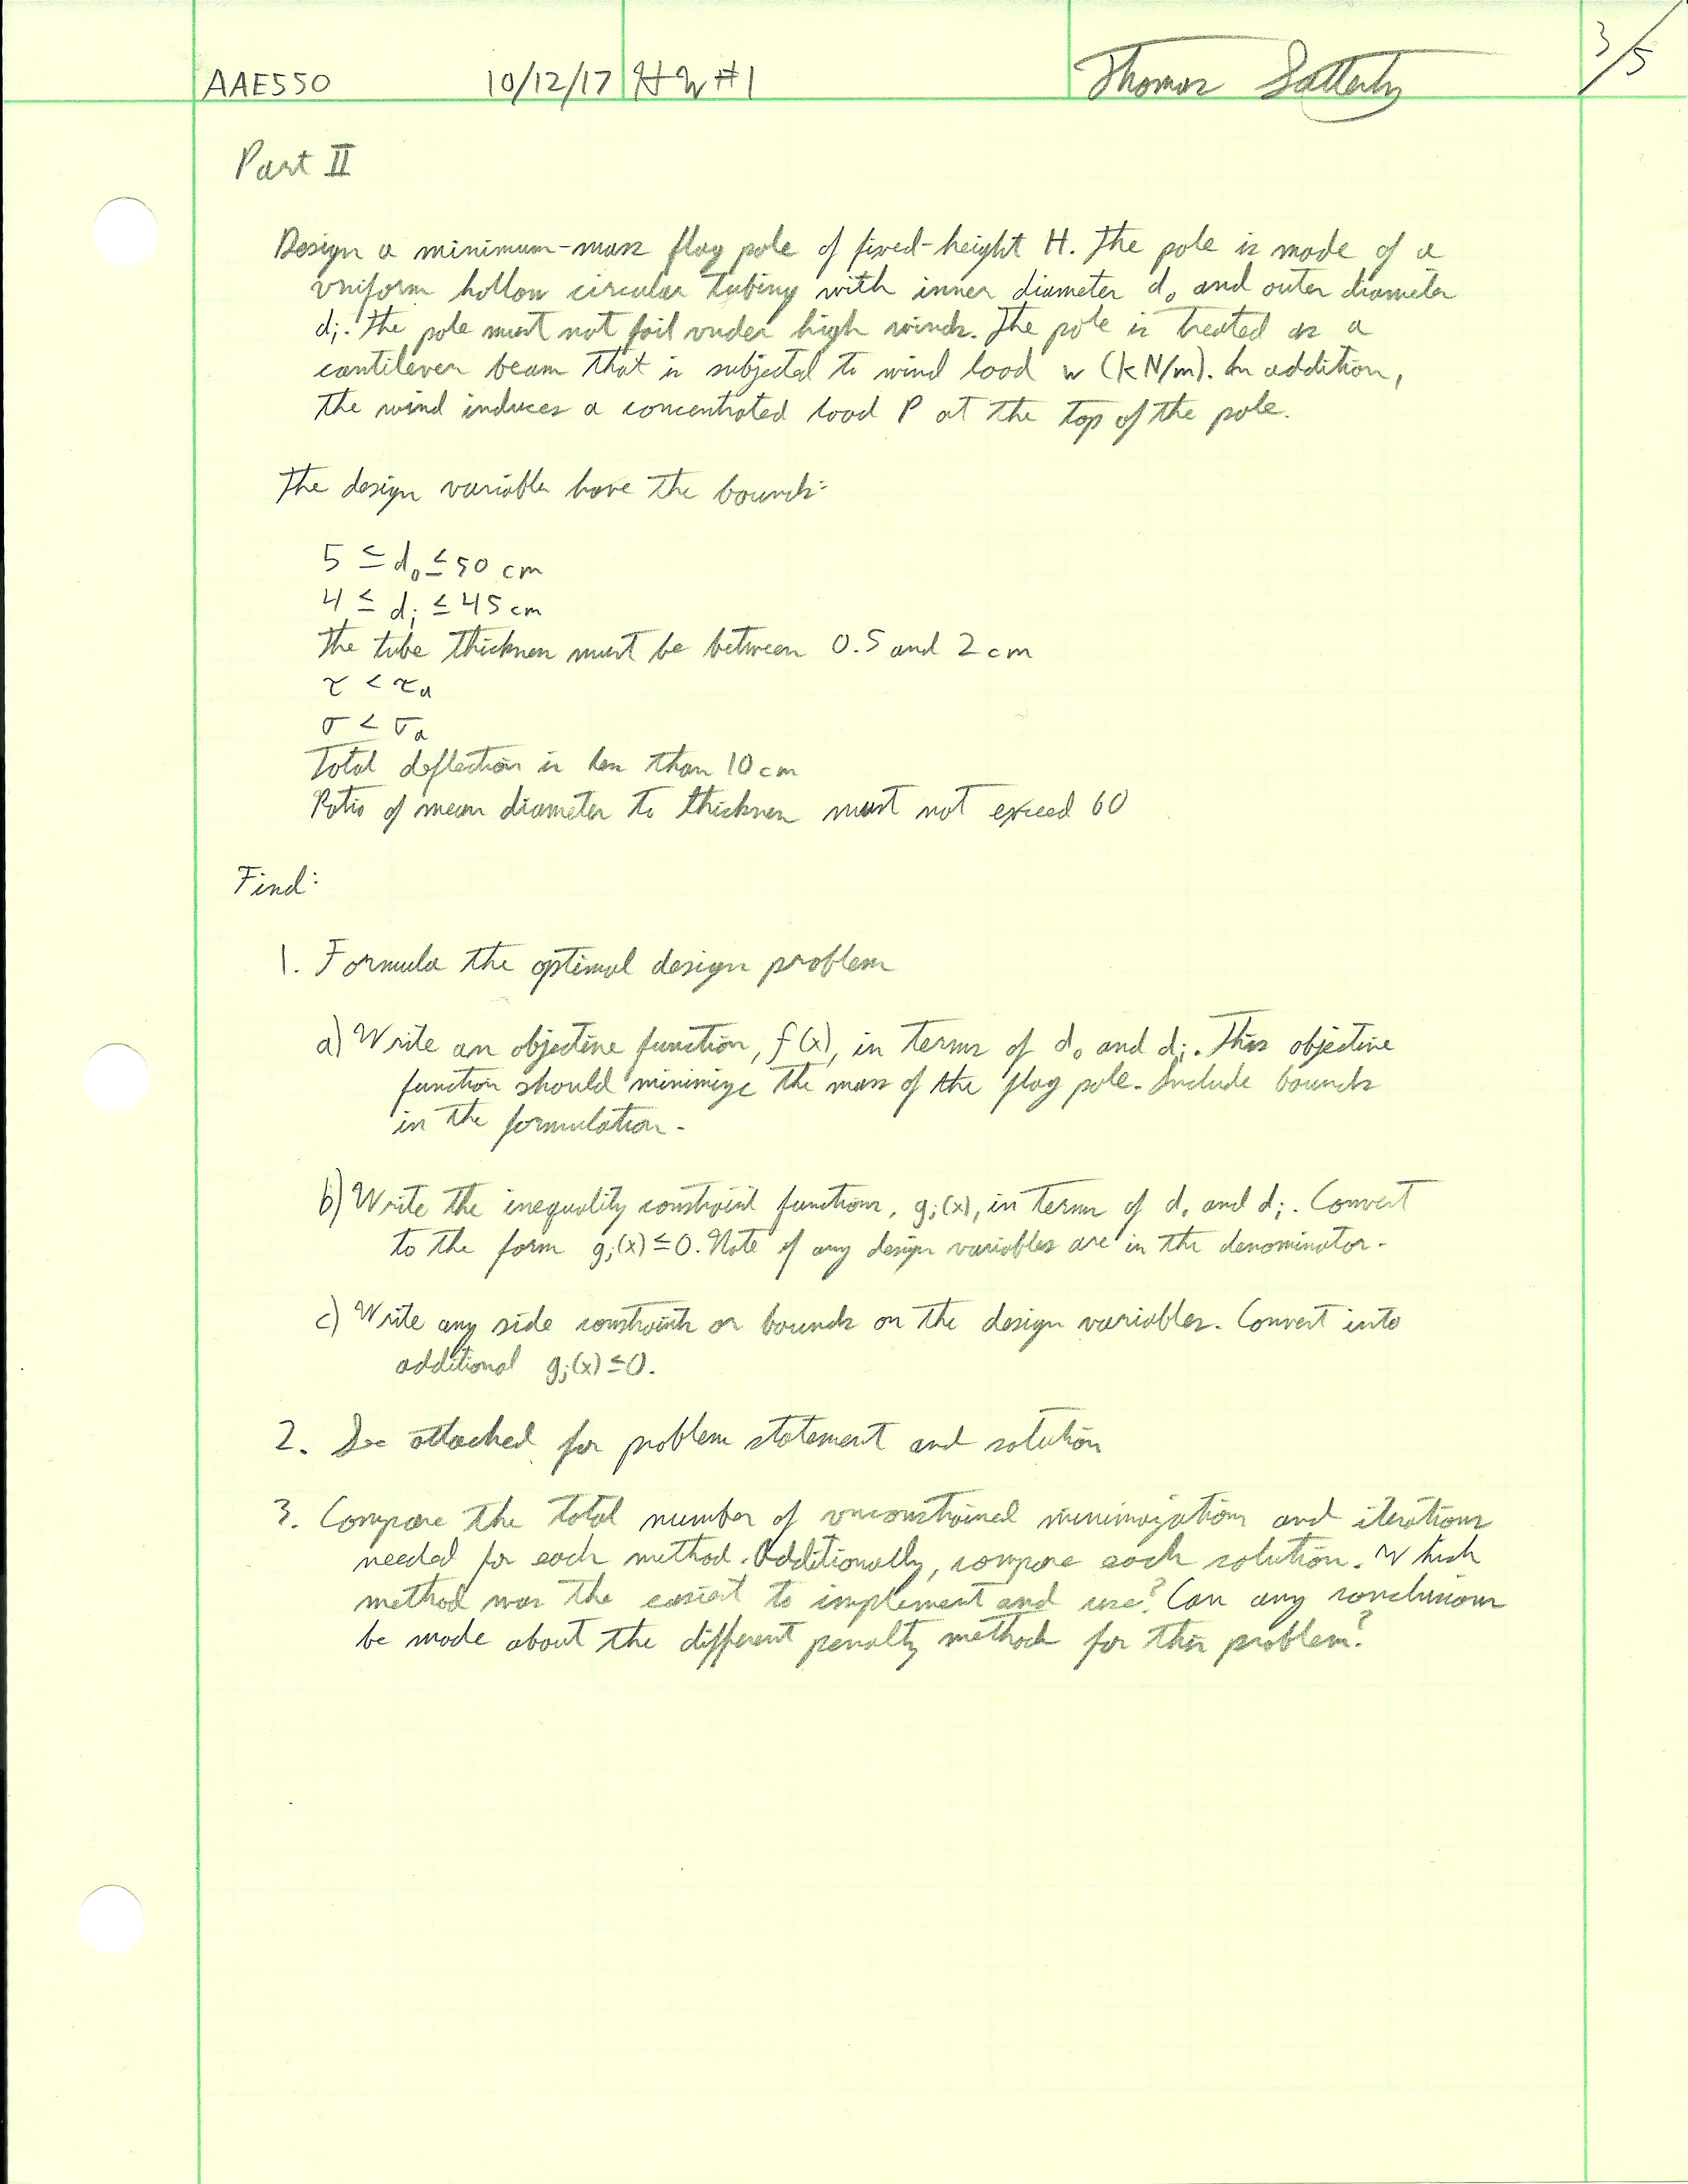 AAE550 10/12/17 HW #1 Thomas Satterly 3/5
Part II
Design a minimum-mass flag pole of fixed-height H. The pole is made of a
uniform hollow circular tubing with inner diameter d₀ and outer diameter
dᵢ. The pole must not fail under high winds. The pole is treated as a
cantilever beam that is subjected to wind load w (kN/m). In addition,
the wind induces a concentrated load P at the top of the pole.
The design variables have the bounds:
5 ≤ d₀ ≤ 50 cm
4 ≤ dᵢ ≤ 45 cm
The tube thickness must be between 0.5 and 2 cm
τ < τₐ
σ < σₐ
Total deflection is less than 10 cm
Ratio of mean diameter to thickness must not exceed 60
Find:
1. Formula the optimal design problem
a) Write an objective function, f(x), in terms of d₀ and dᵢ. This objective
function should minimize the mass of the flag pole. Include bounds
in the formulation.
b) Write the inequality constraint functions, gⱼ(x), in terms of d₀ and dᵢ. Convert
to the form gⱼ(x) ≤ 0. Note if any design variables are in the denominator.
c) Write any side constraints or bounds on the design variables. Convert into
additional gⱼ(x) ≤ 0.
2. See attached for problem statement and solution
3. Compare the total number of unconstrained minimizations and iterations
needed for each method. Additionally, compare each solution. Which
method was the easiest to implement and use? Can any conclusions
be made about the different penalty methods for this problem?